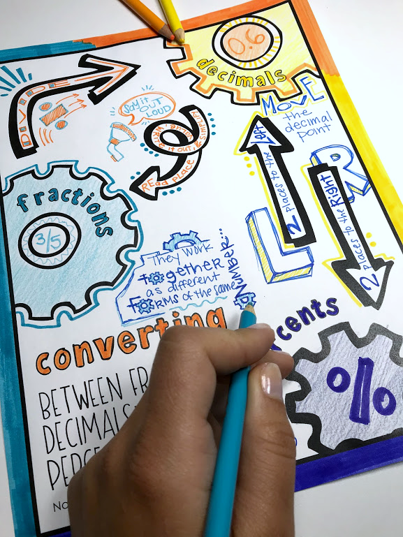 0.6
decimals
DIVIDE
Say it
OUT
LOUD
READ PLACE
MOVE
the
decimal
point
L
2 places to the left
R
2 places to the Right
fractions
3/5
They work
together
as different
forms of the same
NUMBER...
converting
BETWEEN FR
DECIMALS
PERCE
No
cents
%